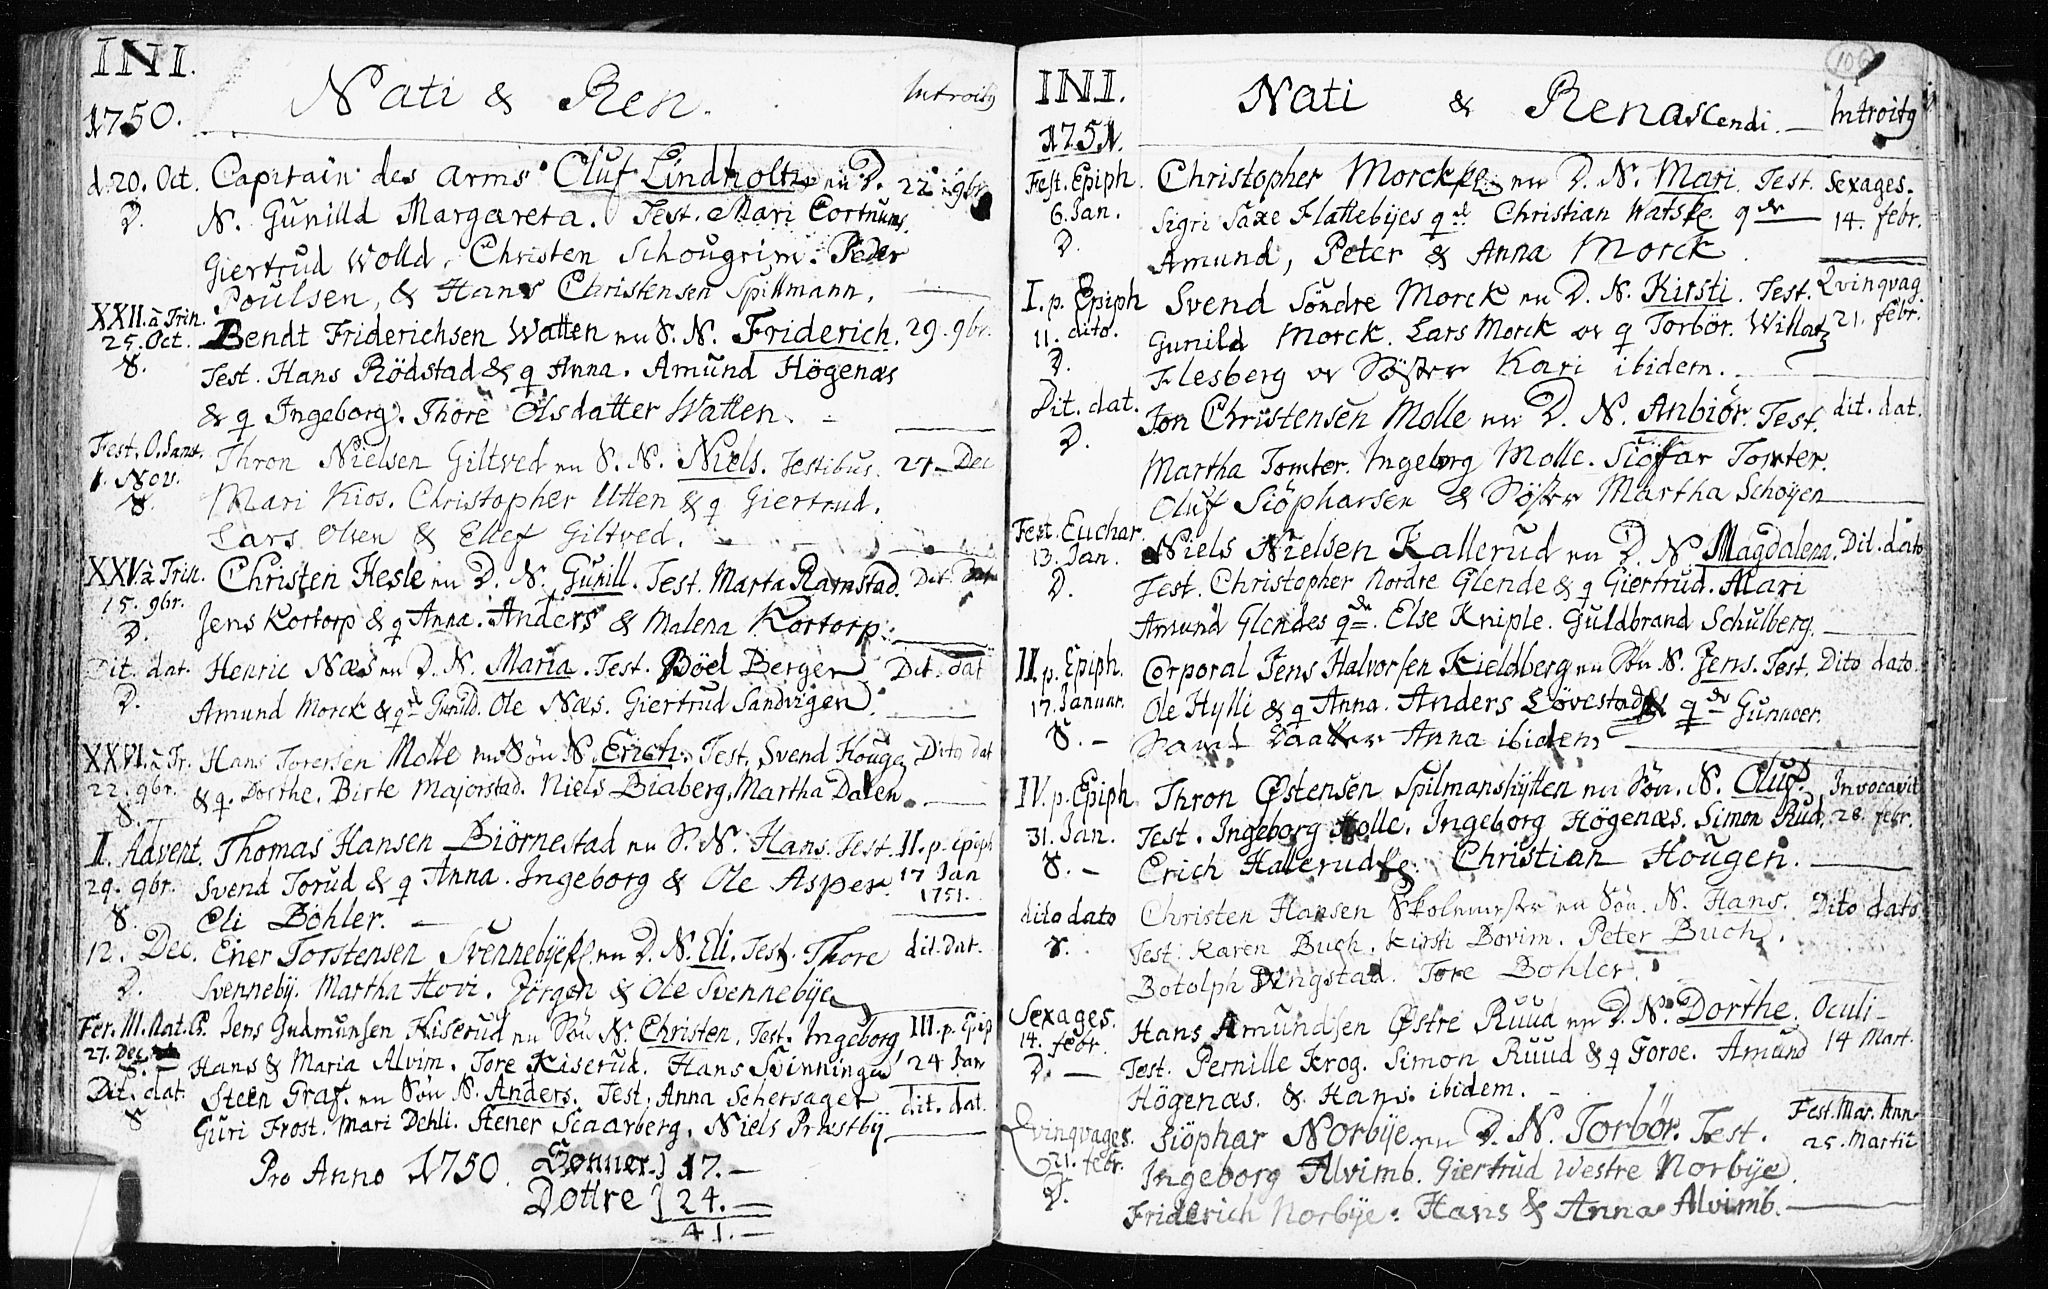 INI.
Nati & Ren.
Introitg
1750.
d. 20. Oct. Capitain des arms Oluf Lindholtz en D. 22. 9br.
D. N. Gunilld Margareta. Test. Mari Cortnums,
Giertrud Wolld, Christen Schougrim. Peder
Poulsen, & Hans Christensen Spillmann.
XXII. à Trin. Bendt Friderichsen Watten en S. N. Friderich. 29. 9br.
25. Oct.
S. Test. Hans Rödstad & q Anna. Amund Högenæs
& q Ingeborg. Thore Olsdatter Watten.
Fest. O. Sanct. Thron Nielsen Giltved en S. N. Niels. Testibus. 27. Dec
1. Nov. Mari Kios. Christopher Utten & q Giertrud.
S. Lars Olsen & Ellef Giltved.
XXV. à Trin. Christen Hesle en D. N. Gunill. Test. Marta Ramstad. Dit. Dat
15. 9br.
D. Jens Kortorp & q Anna. Anders & Malena Kortorp.
Dit. dat. Henric Næs en D. N. Maria. Test. Böel Berger Dit. dat
D. Amund Morck & q Gunild. Ole Næs. Giertrud Sandvigen.
XXVI. à Tr. Hans Torersen Molle en Sön N. Erich. Test. Svend Houga Dito dat
22. 9br.
S. & q. Dorthe. Birte Majorstad. Niels Biaberg, Martha Dalen.
I. Advent. Thomas Hansen Biörnestad en S. N. Hans. Test. II. p. Epiph
29. 9br. Svend Torud & q Anna. Ingeborg & Ole Asper. 17 Jan
1751.
S. Eli Bohler.
12. Dec. Ener Torstensen Svennebye en D. N. Eli. Test. Thore dit. dat.
D. Svenneby. Martha Hovi. Jörgen & Ole Svennebye
Fer. III. Nat. C. Jens Gudmunsen Kiserud en Sön N. Christen. Test. Ingeborg III. p. Epip
27. Dec. Hans & Maria Alvim. Tore Kiserud. Hans Svinninga 24 Jan
Dit. dat. Steen Graf. en Sön N. Anders. Test. Anna Schersager dit. dat.
S Guri Frost. Mari Dehli. Stener Scaarberg. Niels Præstby
Pro Anno 1750. Sønner } 17.
Dottre } 24.
41.
106
INI.
Nati & Renascendi.
Introitg
1751.
Fest. Epiph. Christopher Morck en D. N. Mari. Test. Sexages.
6. Jan. Sigri Saxe Flattebyes q Christian Watske q 14. febr.
D. Amund, Peter & Anna Morck.
I. p. Epiph Svend Söndre Morck en D. N. Kirsti. Test. Qvinqvag
11. dito. Gunild Morck. Lars Morck og q Torbör. Willatz 21. febr.
D. Flesberg og Söster Kari ibidem.
Dit. dat. Jon Christensen Molle en D. N. Anbiör. Test. dit. dat.
D. Martha Tomter. Ingeborg Molle. Siöffar Tomter.
Oluf Siöpharsen & Söster Martha Schøyen
Fest. Euchar. Niels Nielsen Kallerud en D. N Magdalena. Dit. dato
13. Jan.
D. Test. Christopher Nordre Glende & q Giertrud. Mari
Amund Glendes q. Else Kniple. Guldbrand Schulberg.
II p. Epiph. Corporal Jens Halvorsen Kieldberg en Sön N. Jens. Test. Dito dato.
17. Januar. Ole Hylli & q Anna. Anders Lövestad & q Gunnoer.
S. Anna ibidem
IV. p. Epiph. Thron Østensen Spilmanshytten en Sön. N. Oluf. Invocavit
31. Jan. Test. Ingeborg Molle. Ingeborg Högenæs. Simon Rud. 28. febr.
S. Erich Hallerud. Christian Hougen.
dito dato Christen Hansen Skolemester en Sön. N. Hans. Dito dato
S. Test. Karen Buch. Kirsti Bovim. Peter Buch.
Botolph Ringstad. Tore Bohler.
Sexages. Hans Amundsen Østre Ruud en D. N. Dorthe. Oculi
14. febr.
D. Test. Pernille Krog. Simon Ruud & q Goroe. Amund 14 Mart.
Högenæs. & Hans. ibidem.
Qvinqvages. Siöphar Norbye en D. N. Torbör. Test. Fest. Mar. Ann.
21. febr. Ingeborg Alvimb. Giertrud Westre Norbye. 25. Martii
D. Friderich Norbye. Hans & Anna Alvimb.